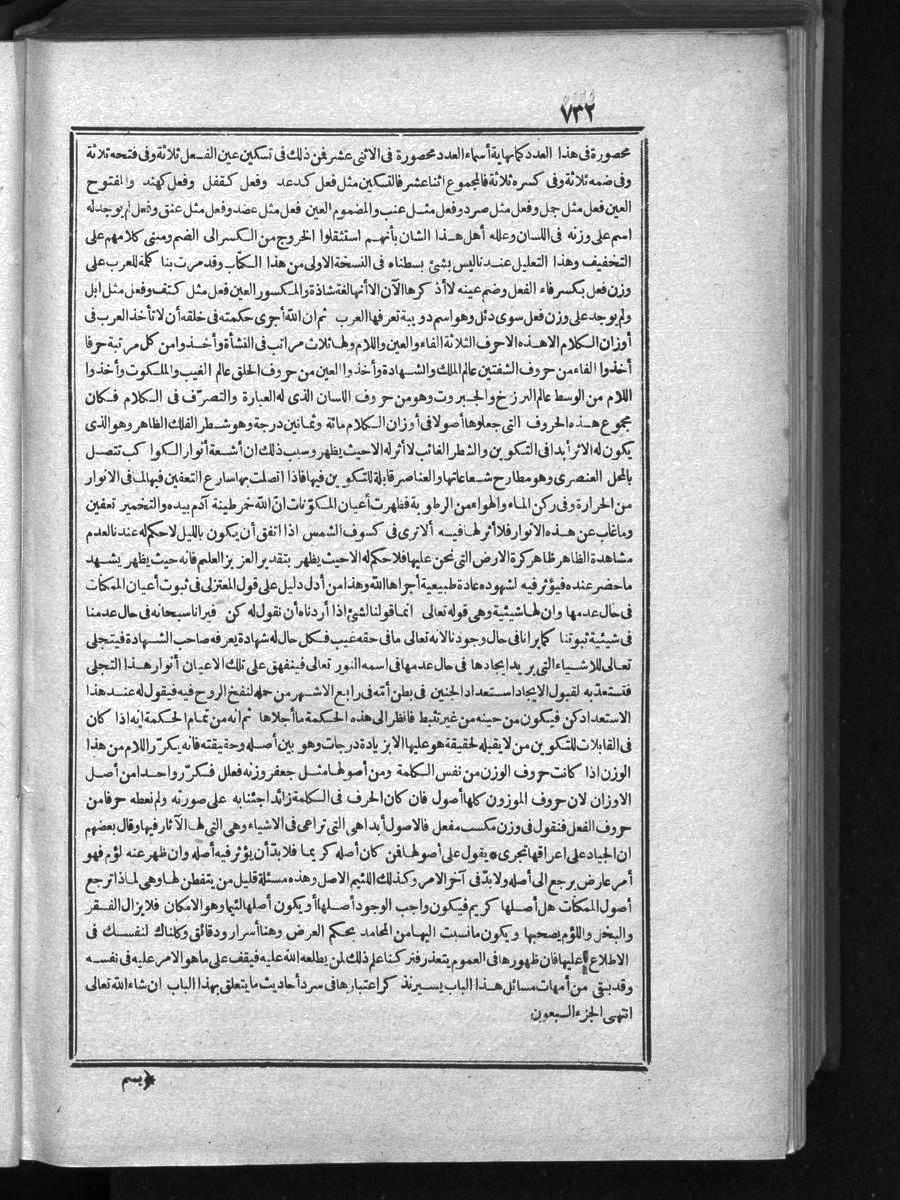 ٧٣٢
محصورة فى هذا العدد كما نهاية أسماء العدد محصورة فى الاثنى عشر فمن ذلك فى تسكين عين الفعل ثلاثة وفى فتحه ثلاثة
وفى ضمه ثلاثة وفى كسره ثلاثة فالمجموع اثنا عشر فالتسكين مثل فعل كدعد وفعل كقفل وفعل كهند والمفتوح
العين فعل مثل جمل وفعل مثل صرد وفعل مثل عنب والمضموم العين فعل مثل عضد وفعل مثل عنق وفعل لم يوجد له
اسم على وزنه فى اللسان وعلله أهل هذا الشان بأنهم استثقلوا الخروج من الكسر الى الضم ومبنى كلامهم على
التخفيف وهذا التعليل عندنا ليس بشئ بسطناه فى النسخة الاولى من هذا الكتاب وقد مرت بنا كلمة للعرب على
وزن فعل بكسر فاء الفعل وضم عينه لا أذكرها الآن الا أنها لغة شاذة والمكسور العين فعل مثل كتف وفعل مثل ابل
ولم يوجد على وزن فعل سوى دئل وهو اسم دويبة تعرفها العرب ثم ان الله أجرى حكمته فى خلقه أن لا تأخذ العرب فى
أوزان الكلام الا هذه الاحرف الثلاثة الفاء والعين واللام ولها ثلاث مراتب فى النشأة وأخذوا من كل مرتبة حرفا
أخذوا الفاء من حروف الشفتين عالم الملك والشهادة وأخذوا العين من حروف الخلق عالم الغيب والملكوت وأخذوا
اللام من الوسط عالم البرزخ والجبروت وهو من حروف اللسان الذى له العبارة والتصرّف فى الكلام فكان
مجموع هذه الحروف التى جعلوها أصولا فى أوزان الكلام مائة وثمانين درجة وهو شطر الفلك الظاهر وهو الذى
يكون له الاثر أبدا فى التكوين والشطر الغائب لا أثر له الا حيث يظهر وسبب ذلك ان أشعة أنوار الكواكب تتصل
بالمحل العنصرى وهو مطارح شعاعاتها والعناصر قابلة للتكوين فيها فاذا اتصلت بها سارع التعفين فيها لما فى الانوار
من الحرارة وفى ركن الماء والهواء من الرطوبة فظهرت أعيان المكوّنات انّ الله خمر طينة آدم بيده والتخمير تعفين
وما غاب عن هذه الانوار فلا أثر لها فيسه ألا ترى فى كسوف الشمس اذا اتفق أن يكون بالليل لا حكم له عندنا لعدم
مشاهدة الظاهر ظاهر كرة الارض التى نحن عليها فلا حكم له الا حيث يظهر بتقدير العزيز العليم فانه حيث يظهر يشهد
ما حضر عنده فيؤثر فيه لشهوده عادة طبيعية أجراها الله وهذا من أدل دليل على قول المعتزلى فى ثبوت أعيان الممكنات
فى حال عدمها وان لها شيئية وهى قوله تعالى انما قولنا لشئ اذا أردناه أن نقول له كن فيرانا سبحانه فى حال عدمنا
فى شيئية ثبوتنا كما يرانا فى حال وجودنا لانه تعالى ما فى حقه غيب فكل حال له شهادة يعرفه صاحب الشهادة فيتجلى
تعالى للاشياء التى يريد ايجادها فى حال عدمها فى اسمه النور تعالى فينفهق على تلك الاعيان أنوار هذا التجلى
فتستعدّ به لقبول الايجاد استعداد الجنين فى بطن أمّه فى رابع الاشهر من حمله لنفخ الروح فيه فيقول له عند هذا
الاستعداد كن فيكون من حينه من غير تثبط فانظر الى هذه الحكمة ما أجلاها ثم انه من تمام الحكمة انه اذا كان
فى القابلات للتكوين من لا يقبله لحقيقة هو عليها الا بزيادة درجات وهو بين أصله وحقيقته فانه يكرّر اللام من هذا
الوزن اذا كانت حروف الوزن من نفس الكلمة ومن أصولها مثل جعفر وزنه فعلل فكرّر واحدا من أصل
الاوزان لان حروف الموزون كلها أصول فان كان الحرف فى الكلمة زائدا جئنا به على صورته ولم نعطه حرفا من
حروف الفعل فنقول فى وزن مكسب مفعل فالاصول أبدا هى التى تراعى فى الاشياء وهى التى لها الآثار فيها وقال بعضهم
ان الجياد على اعراقها تجرى * يقول على أصولها فمن كان أصله كريما فلا بدّ أن يؤثر فيه أصله وان ظهر عنه لؤم فهو
أمر عارض يرجع الى أصله ولا بدّ فى آخر الامر وكذلك اللئيم الاصل وهذه مسئلة قليل من يتفطن لها وهى لماذا ترجع
أصول الممكنات هل أصلها كريم فيكون واجب الوجود أصلها أو يكون أصلها لئيما وهو الامكان فلا يزال الفقر
والبخل واللؤم يصحبها ويكون ما نسبت اليها من المحامد بحكم العرض وهنا أسرار ودقائق وكلناك لنفسك فى
الاطلاع عليها فان ظهورها فى العموم يتعذر فتركنا علم ذلك لمن يطلعه الله عليه فيقف على ما هو الامر عليه فى نفسه
وقد بقى من أمهات مسائل هذا الباب يسير نذكر اعتبارها فى سرد أحاديث ما يتعلق بهذا الباب ان شاء الله تعالى
انتهى الجزء السبعون
﴿بسم